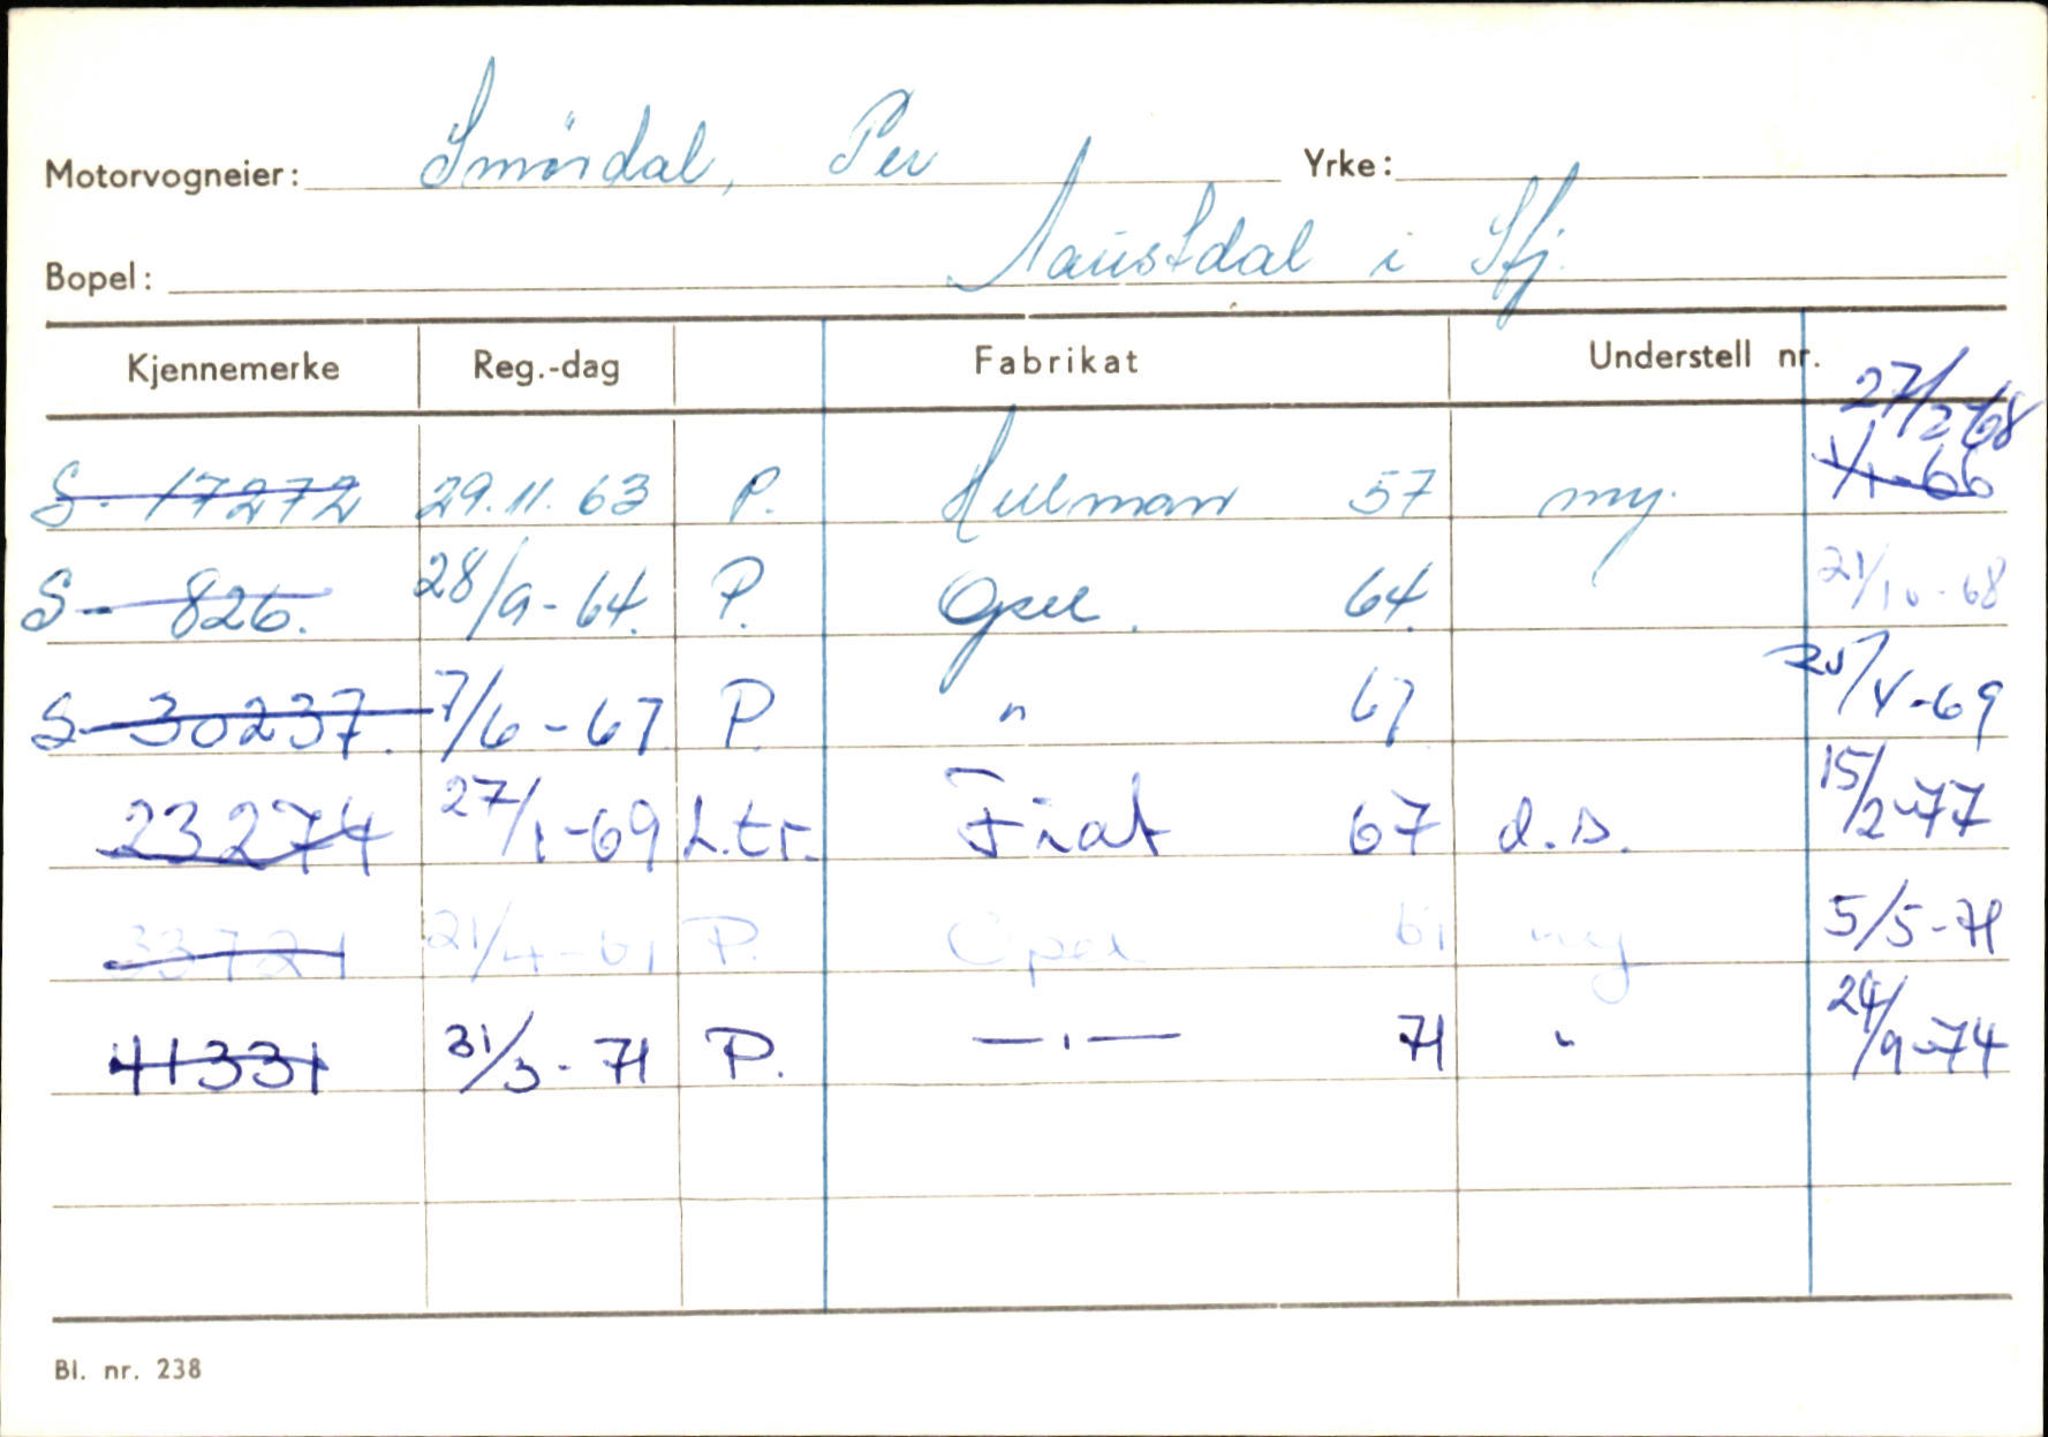 Motorvogneier: Smördal, Per Yrke:
Bopel: Naustdal i Sfj.
Kjennemerke Reg.-dag Fabrikat Understell nr.
27/2-68
S-17272 29.11.63 P. Hillman 57 ny. 1/1-66
S-826. 28/9-64. P. Opel. 64. 21/10-68
S-30237. 7/6-67 P. " 67 25/4-69
23274 27/1-69 L.tr. Fiat 67 d.s. 15/2-77
33721 21/4-61 P. Opel 61 ny 5/5-71
41331 31/3-71 P. —"— 71 " 24/9-74
Bl. nr. 238